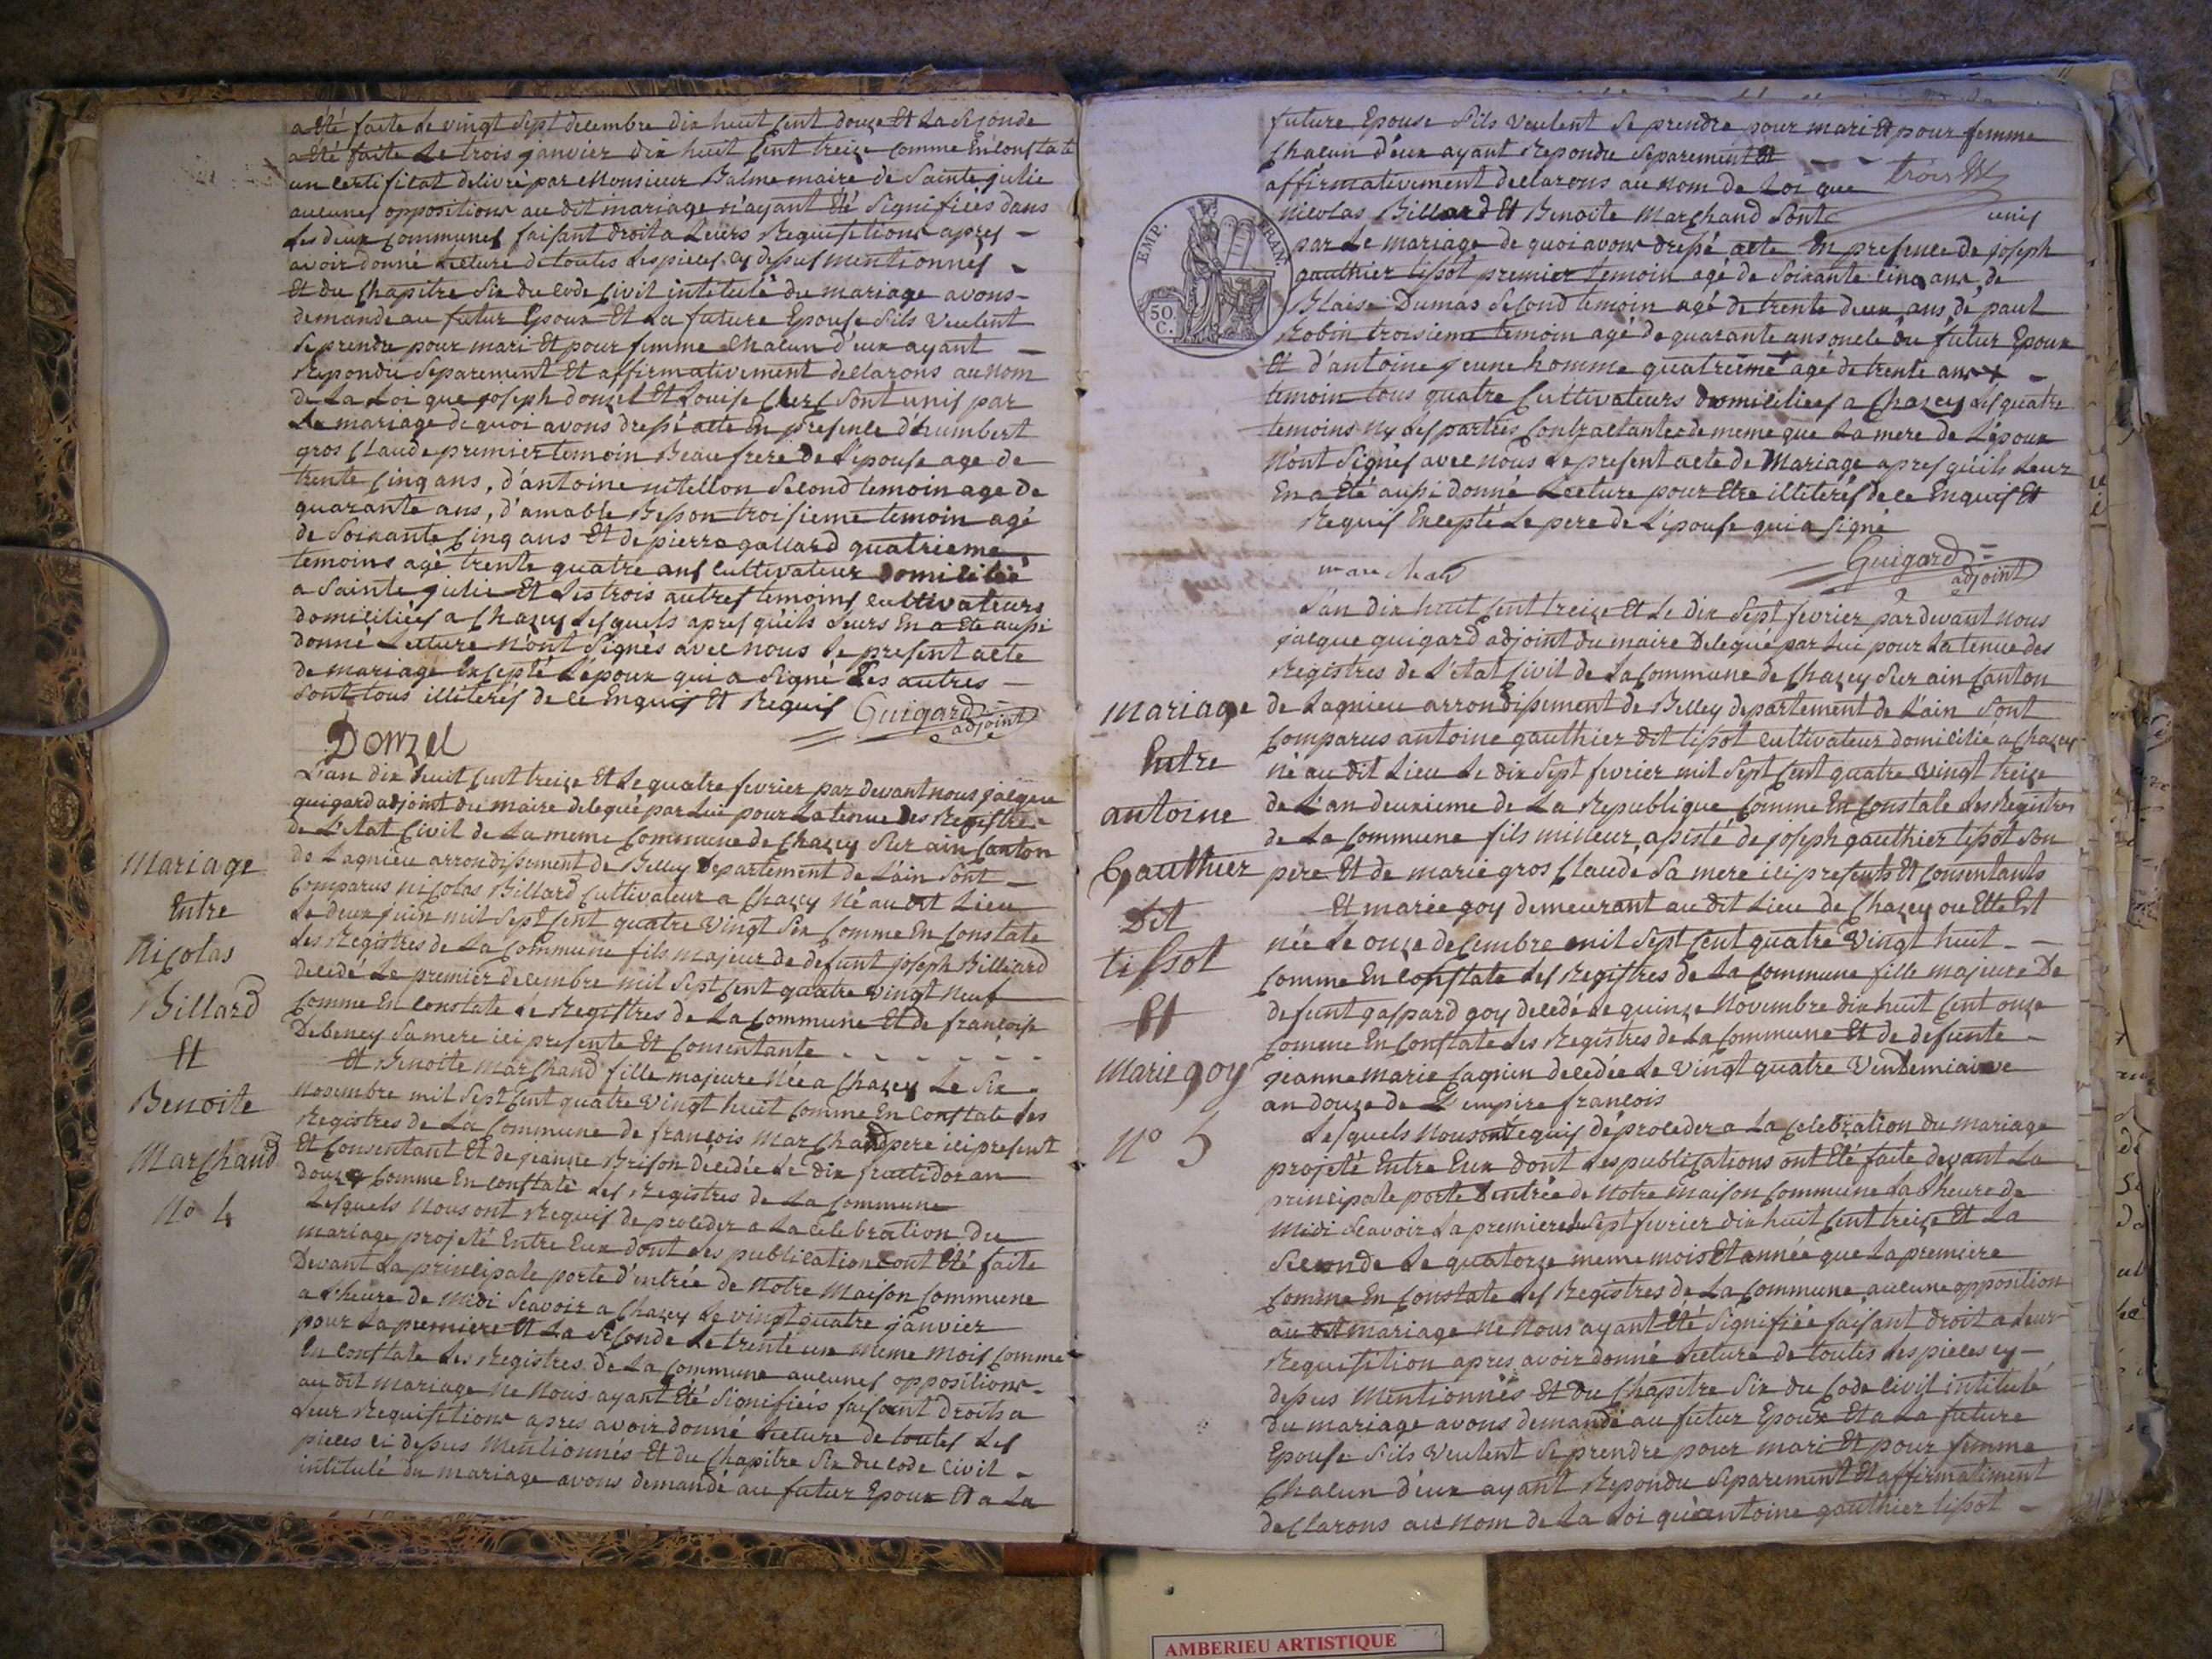 a été faite le vingt sept decembre dix huit cent douze Et La Seconde
a été faite Le trois janvier dix huit Cent treize comme En Constate
un certificat delivré par Monsieur Balme maire de Sainte julie
aucunes oppositions au dit mariage n'ayant été Signifiées dans
Les deux Communes faisant droit a Leurs Requisitions apres –
avoir donné Lecture de toutes Les pieces cy dessus mentionnes –
Et du Chapitre Six du Code Civil intitulé du mariage avons –
demandé au futur Epoux Et La future Epouse Sils Veulent
Se prendre pour mari Et pour femme Chacun d'eux ayant –
Repondu Separement Et affirmativement declarons au nom
de La Loi que joseph donzel Et Louise Clerc Sont unis par
Le mariage de quoi avons dressé acte En presence d'humbert
gros Claude premier temoin Beau frere de L'epouse age de
trente Cinq ans, d'antoine mitellon Second temoin age de
quarante ans, d'amable Besson troisieme temoin agé
de Soixante Cinq ans Et de pierre gallard quatrieme
temoins agé trente quatre ans Cultivateur domicilié
a Sainte julie Et Les trois autres temoins cultivateurs
domiciliées a Chazey Lesquels apres qu'ils Leurs En a été aussi
donné Lecture n'ont Signés avec nous Le present acte
de mariage Excepté L'époux qui a Signé Les autres –
Sont tous illiterés de ce Enquis Et Requis Guigard
adjoint
Donzel
Mariage
Entre
Nicolas
Billard
Et
Benoite
Marchand
No 4
L'an dix huit Cent treize Et Le quatre fevrier par devant nous jacque
guigard adjoint du maire delegué par Lui pour La tenue des Registres
de L'etat Civil de La meme Commune de Chazey Sur ain Canton
de Lagnieu arrondissement de Belley Departement de L'ain Sont –
Comparus nicolas Billard Cultivateur a Chazey Né au dit Lieu
Le deux juin mil Sept Cent quatre Vingt Six Comme En Constate
Les Registres de La Commune fils majeur de defunt joseph Billiard
decedé Le premier decembre mil Sept Cent quatre Vingt Neuf
Comme En Constate Le Registres de La Commune Et de francoise
Debeney Sa mere ici presente Et Consentante
Et Benoite Marchand fille majeure Née a Chazey Le Six
Novembre mil Sept Cent quatre Vingt huit Comme En Constate Les
Registres de La Commune de francois Marchand pere ici present
Et Consentant Et de jeanne Brison décédée Le dix fructidor an
douze Comme En Constate Les Registres de La Commune
Lesquels Nous ont Requis de proceder a La celebration du
mariage projeté Entre Eux dont Les publications ont Eté faite
Devant La principale porte d'entrée de Notre Maison Commune
a L'heure de Midi Scavoir a Chazey Le vingt quatre janvier
pour La premiere Et La Seconde Le trente un meme mois Comme
En Constate Les Registres de La Commune aucunes oppositions
au dit Mariage Ne Nous ayant Eté Signifiées faisant droits a
Leur Requisitions apres avoir donné Lecture de toutes Les
pieces ci dessus Mentionnés Et du Chapitre Six du Code Civil –
intitulé du mariage avons demandé au futur Epoux Et a La
future Epouse Sils Veulent Se prendre pour mari Et pour femme
Chacun d'eux ayant Repondu Separement Et
affirmativement declarons au nom de Loi que
nicolas Billard Et Benoite Marchand Sont unis
EMP. FRAN.
50
C.
par Le mariage de quoi avons dressé acte En presence de joseph
gauthier tissot premier temoin agé de Soixante Cinq ans, de
Blaise Dumas Second temoin agé de trente deux ans, de paul
Robin troisieme temoin agé de quarante ans oncle du futur Epoux
Et d'antoine jeune homme quatrieme agé de trente ans
temoin tous quatre Cultivateurs domiciliees a Chazey Les quatre
temoins ny Les parties Contractantes de meme que La mere de L'époux
N'ont Signés avec nous Le present acte de Mariage apres qu'ils Leur
En a Eté aussi donné Lecture pour Etre illiterés de ce Enquis Et
Requis Excepté Le pere de L'épouse qui a Signé
Guigard
adjoint
Mariage
Entre
antoine
Gauthier
Dit
tissot
Et
Marie goy
No 5
L'an dix huit Cent treize Et Le dix Sept fevrier par devant nous
jacque guigard adjoint du maire Delegué par Lui pour La tenue des
Registres de L'etat Civil de La Commune de Chazey Sur ain Canton
de Lagnieu arrondissement de Belley departement de L'ain Sont
Comparus antoine gauthier dit tissot cultivateur domicilié a Chazey
né au dit Lieu Le dix Sept fevrier mil Sept Cent quatre vingt treize
de L'an deuxieme de La Republique Comme En Constate Les Registres
de La Commune fils mineur, assisté de joseph gauthier tissot Son
pere Et de marie gros Claude Sa mere ici presents Et Consentants
Et marie goy demeurant au dit Lieu de Chazey ou Elle Est
née Le onze decembre mil Sept Cent quatre Vingt huit – –
Comme En Constate Les Registres de La Commune fille majeure De
defunt gaspard goy decedé Le quinze Novembre dix huit Cent onze
Comme En Constate Les Registres de La Commune Et de defunte –
jeanne marie Cagnin decedée Le Vingt quatre Vendemiaire
an douze de L'empire francois
Lesquels Nous ont equis de proceder a La Celebration du mariage
projeté Entre Eux dont Les publications ont Eté faite devant La
principale porte d'entrée de Notre Maison Commune La L'heure de
Midi Scavoir La premiere Le Sept fevrier dix huit Cent treize Et La
Seconde Le quatorze meme mois Et année que La premiere
Comme En Constate Les Registres de La Commune aucune opposition
au dit Mariage Ne Nous ayant Eté Signifiée faisant droit a Leur
Requisition apres avoir donné Lecture de toutes Les pieces cy –
dessus Mentionnés Et du Chapitre Six du Code Civil intitulé
Du mariage avons demandé au futur Epoux Et a La future
Epouse Sils Veulent Se prendre pour mari Et pour femme
Chacun d'eux ayant Repondu Separement Et affirmatiment
declarons au nom de La Loi qu'antoine gauthier tissot –
AMBERIEU ARTISTIQUE